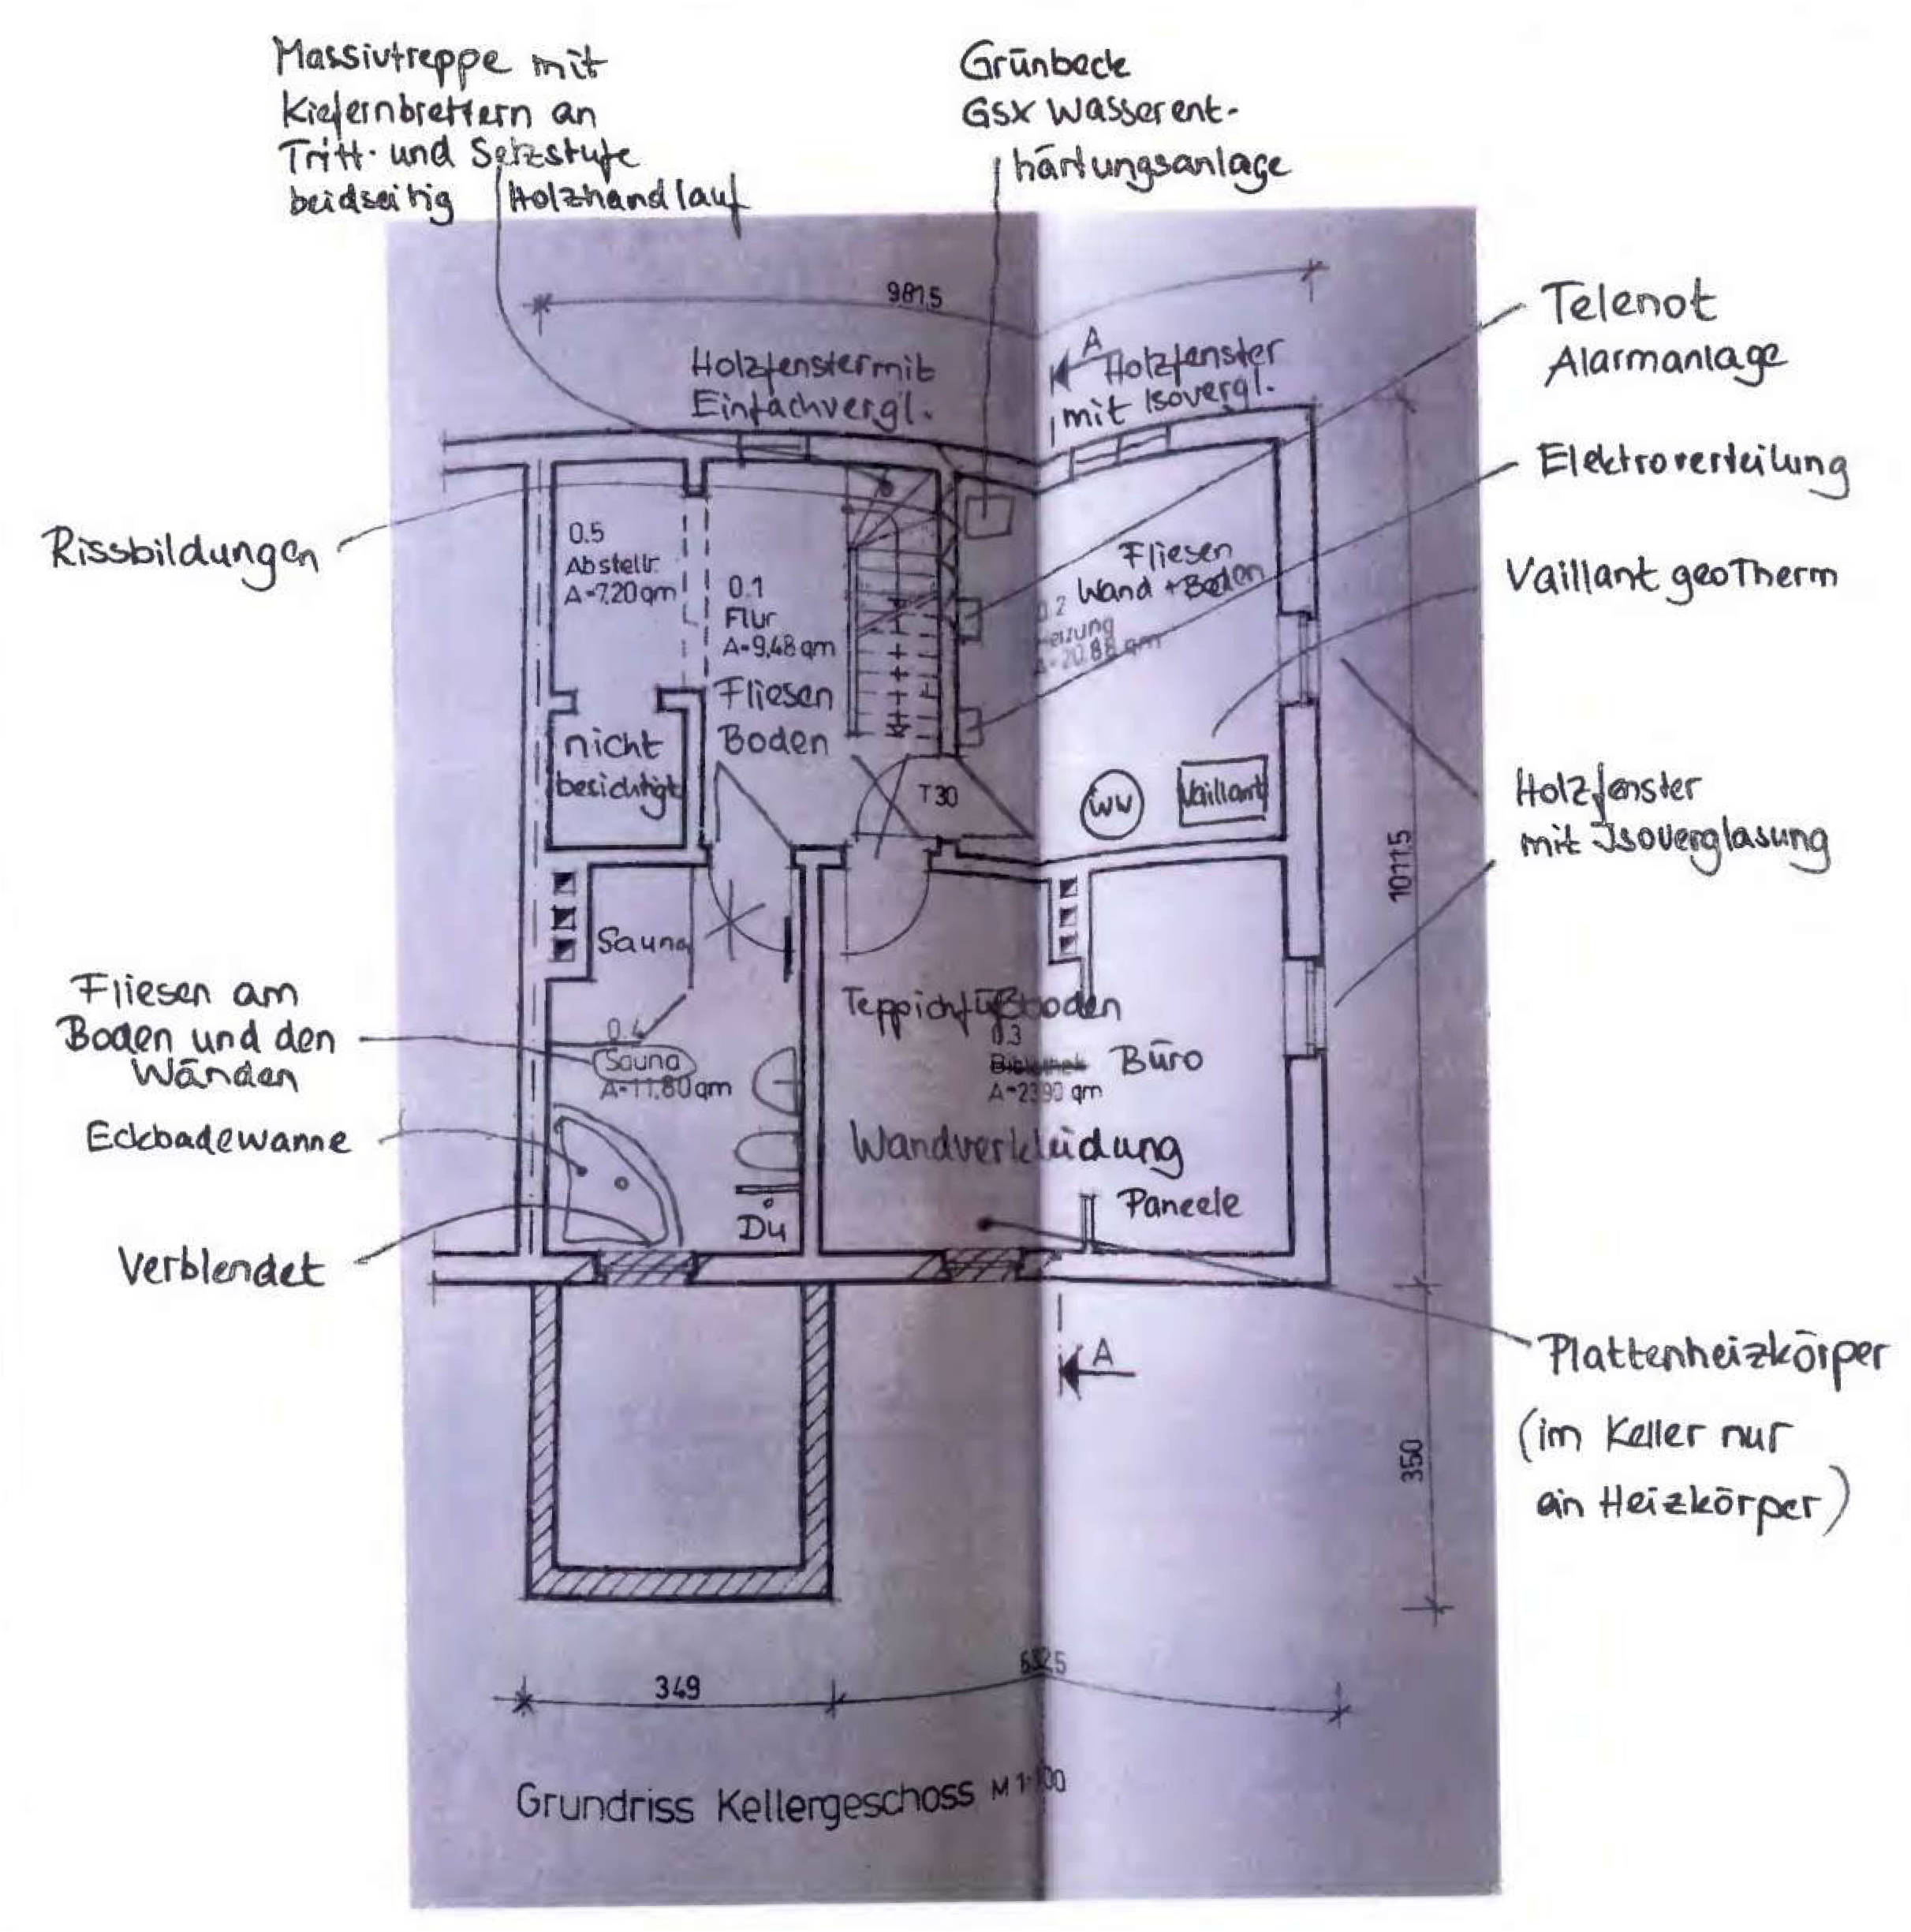 Massivtreppe mit
Kiefernbrettern an
Tritt- und Setzstufe
beidseitig Holzhandlauf
Grünbeck
GSX Wasserent-
härtungsanlage
9815
Telenot
Alarmanlage
Holzfenster mit
Einfachvergl.
A
Holzfenster
mit Isovergl.
Elektroverteilung
Rissbildungen
0.5
Abstellr.
A=7,20 qm
0.1
Flur
A=9,48 qm
Fliesen
Boden
Fliesen
Wand + Boden
0.2
Heizung
A=20.88 qm
Vaillant geoTherm
nicht
besichtigt
T30
WW
Vaillant
Holzfenster
mit Isoverglasung
10115
Sauna
Fliesen am
Boden und den
Wänden
0.4
Sauna
A=11,80 qm
Teppichfußboden
0.3
Bibliothek Büro
A=23,90 qm
Eckbadewanne
Wandverkleidung
Paneele
Du
Verblendet
A
Plattenheizkörper
(im Keller nur
ein Heizkörper)
350
349
6325
Grundriss Kellergeschoss M 1:100